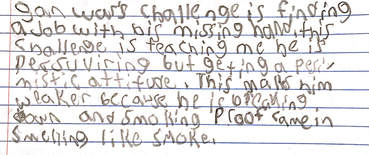 gan wars challenge is finding
a Job with his missing hand, this
challenge is teaching me he is
persuviring but geting a pesi
mistic attitude, This maks him
weaker because he is breaking
down and smoking Proof came in
Smelling like smoke.